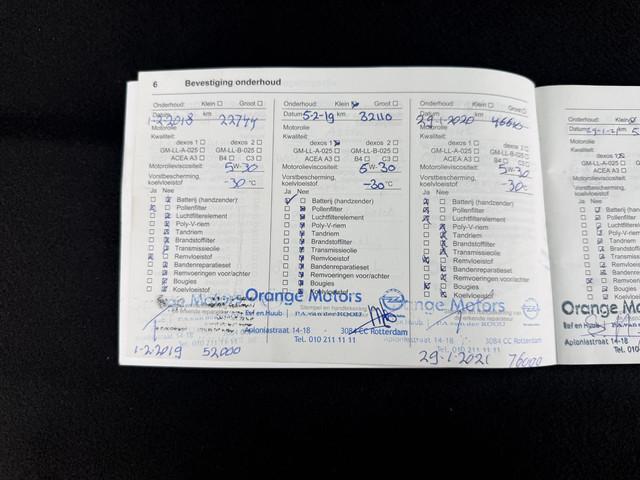 6 Bevestiging onderhoud
Onderhoud: Klein Groot
1-2-2018 km 22744
Motorolie
Kwaliteit:
dexos 1 dexos 2
GM-LL-A-025 GM-LL-B-025
ACEA A3 B4 C3
Motorolieviscositeit: 5W-30
Vorstbescherming,
koelvloeistof -30 °C
Ja Nee
Batterij (handzender)
Pollenfilter
Luchtfilterelement
Poly-V-riem
Tandriem
Brandstoffilter
Transmissieolie
Remvloeistof
Bandenreparatieset
Remvoeringen voor/achter
Bougies
Koelvloeistof
1-2-2019 52000
Onderhoud: Klein Groot
Datum 5-2-19 km 32110
Motorolie
Kwaliteit:
dexos 1 dexos 2
GM-LL-A-025 GM-LL-B-025
ACEA A3 B4 C3
Motorolieviscositeit: 5W-30
Vorstbescherming,
koelvloeistof -30 °C
Ja Nee
Batterij (handzender)
Pollenfilter
Luchtfilterelement
Poly-V-riem
Tandriem
Brandstoffilter
Transmissieolie
Remvloeistof
Bandenreparatieset
Remvoeringen voor/achter
Bougies
Koelvloeistof
Orange Motors
Eef en Huub
Aploniastraat 14-18 3084 CC Rotterdam
Tel. 010 211 11 11
Onderhoud: Klein Groot
29-1-2020 km
Motorolie
Kwaliteit:
dexos 1
GM-LL-A-025 GM-LL-B-025
ACEA A3 B4
Motorolieviscositeit: 5W-30
Vorstbescherming,
koelvloeistof -30°C
Ja Nee
Batterij (handzender)
Pollenfilter
Luchtfilterelement
Poly-V-riem
Tandriem
Brandstoffilter
Transmissieolie
Remvloeistof
Bandenreparatieset
Remvoeringen voor/achter
Bougies
Koelvloeistof
Orange Motors
Aploniastraat 14-18 3084 CC Rotterdam
Tel. 010 211 11 11
29-1-2021 76000
Onderhoud: Klein
Datum
Motorolie
Kwaliteit:
GM-LL-A-025
ACEA A3
Motorolieviscositeit:
Vorstbescherming,
koelvloeistof
Ja Nee
Batterij
Pollenfilter
Luchtfilterelement
Poly-V-riem
Tandriem
Brandstoffilter
Transmissieolie
Remvloeistof
Bandenreparatieset
Bougies
Koelvloeistof
Orange Mo
Eef en Huub
Aploniastraat 14-18
Tel. 010